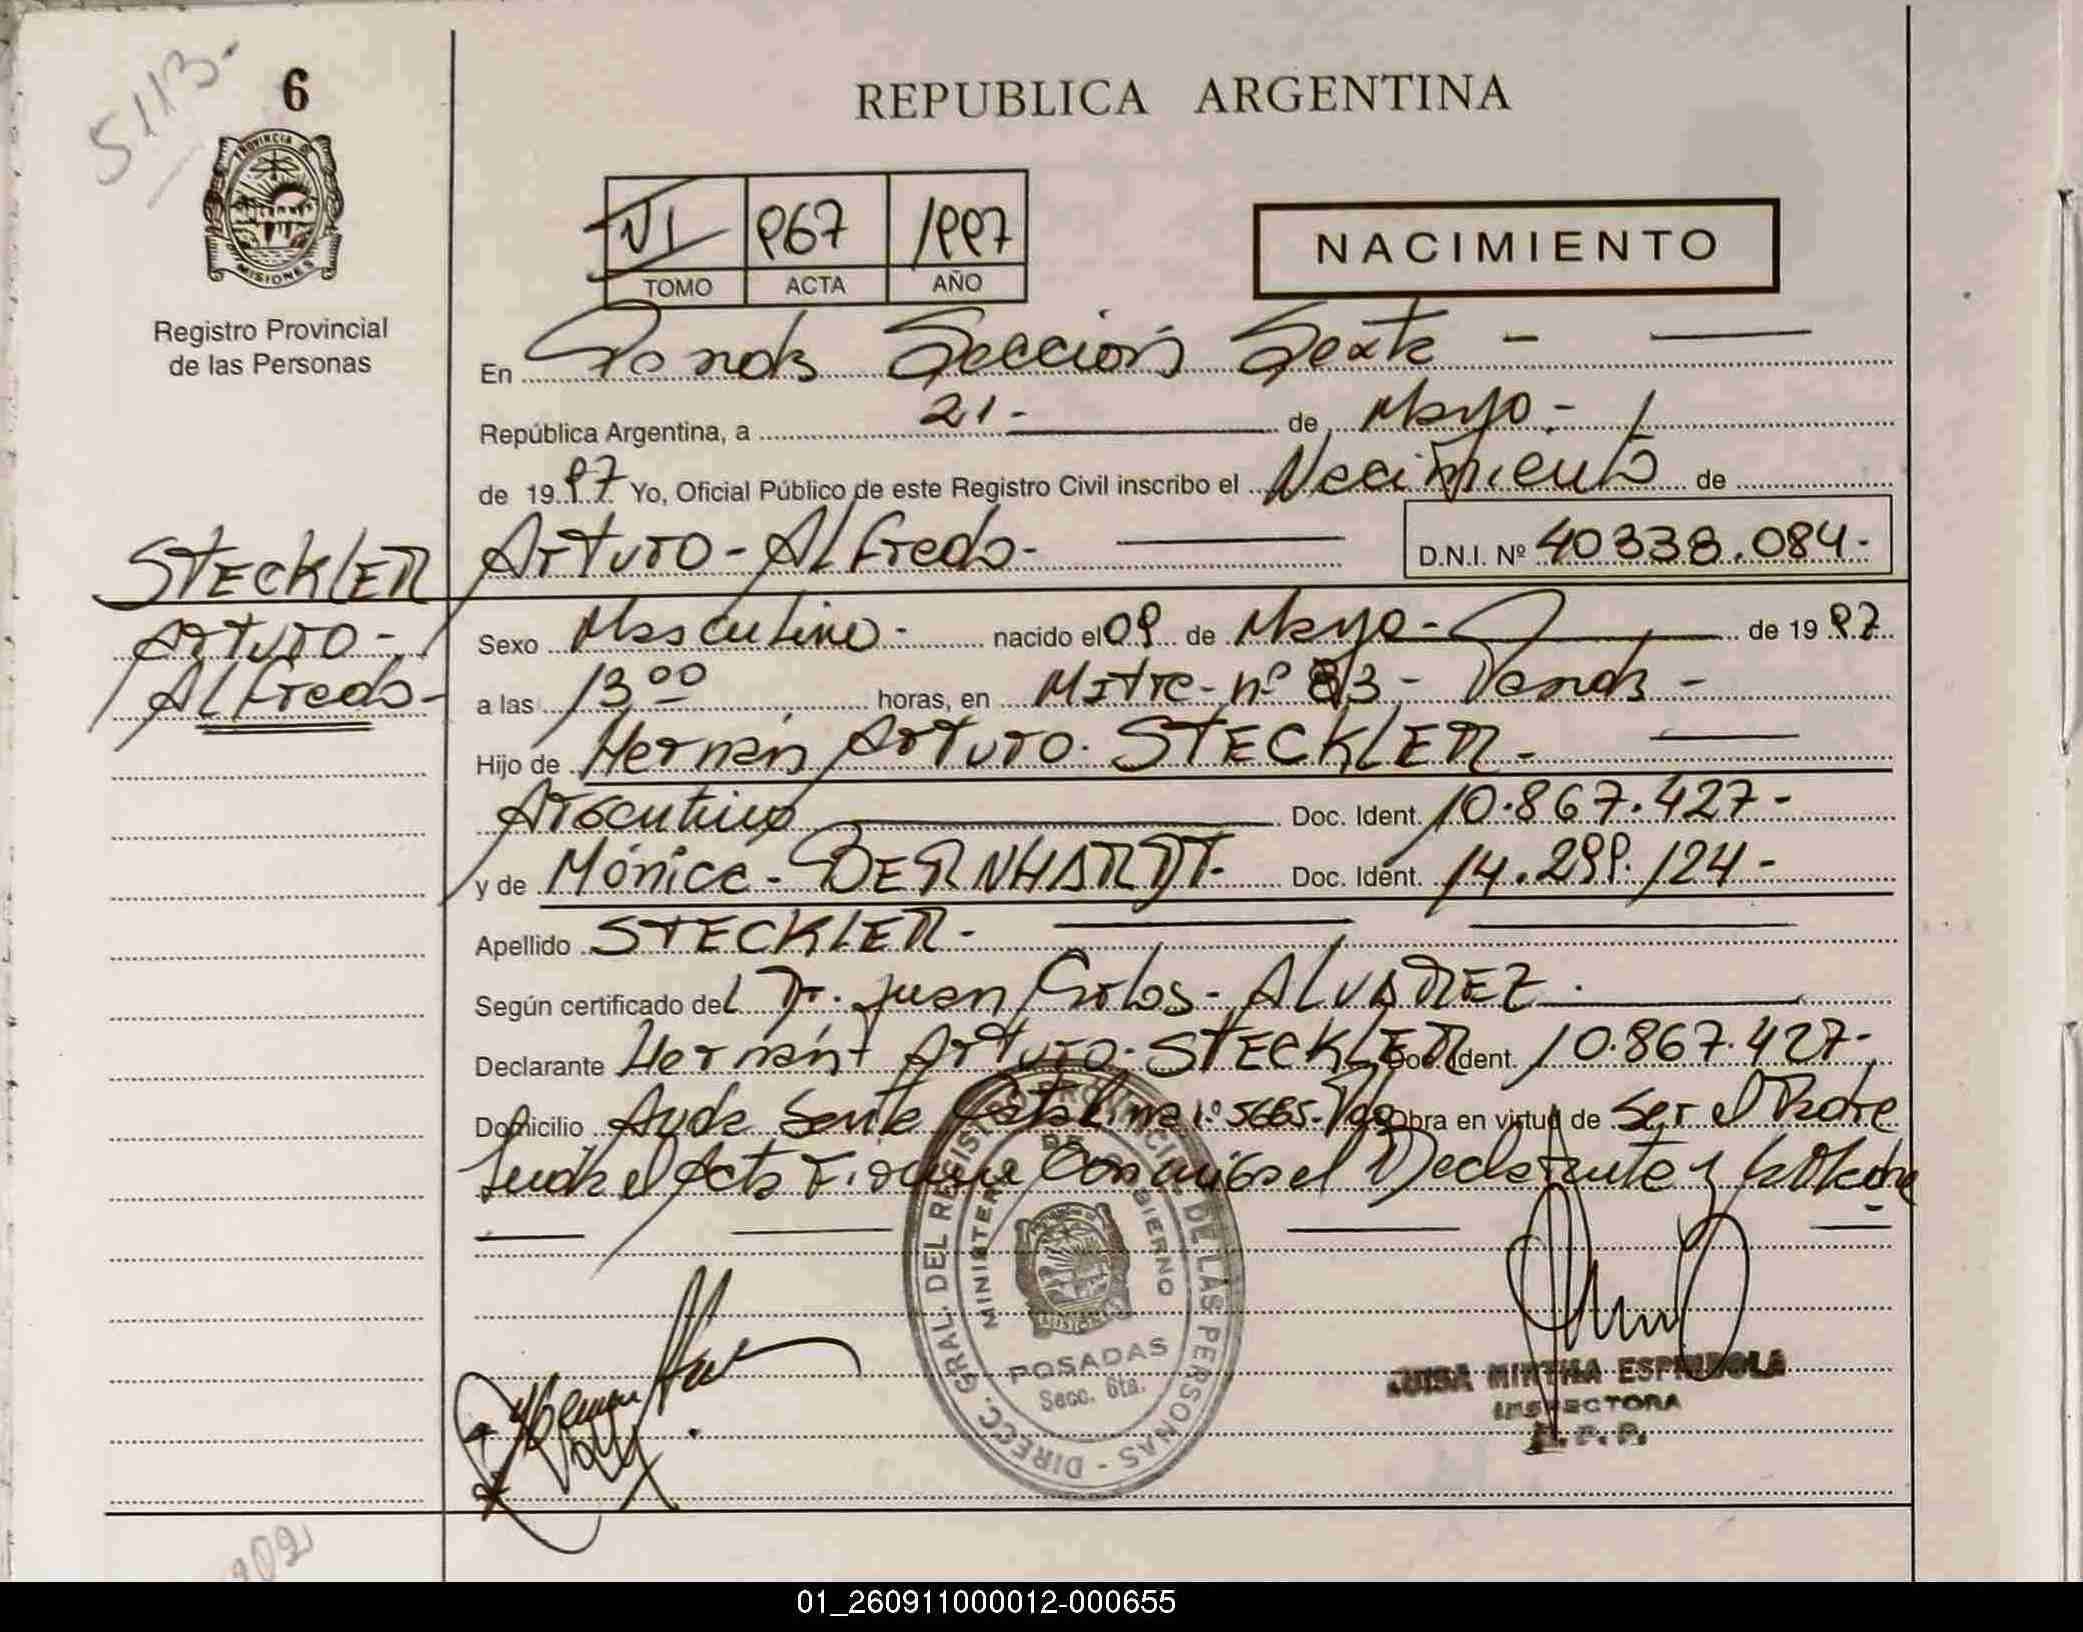 5113-
6
REPUBLICA ARGENTINA
PROVINCIA D
MISIONES
Registro Provincial
de las Personas
VI 967 1997
TOMO ACTA AÑO
NACIMIENTO
En Posadas Sección Sexta -
República Argentina, a 21- de Mayo -
de 1997 Yo, Oficial Público de este Registro Civil inscribo el Nacimiento de
Arturo - Alfredo - D.N.I. Nº 40338.084-
STECKLER
Arturo -
Alfredo -
Sexo Masculino - nacido el 09 de Mayo - de 1997
a las 13 00 horas, en Mitre - nº 83 - Posadas -
Hijo de Hernán Arturo. STECKLER -
Argentino Doc. Ident. 10.867.427-
y de Mónica - BERNHARDT. Doc. Ident. 14.299.124-
Apellido STECKLER -
Según certificado del Dr. Juan Carlos - ALVAREZ .
Declarante Hernán Arturo - STECKLER Doc. Ident. 10.867.427-
Domicilio Avda Santa Catalina nº 5685- Obra en virtud de Ser el Padre
Leida el Acta Firman Conmigo el Declarante y la Madre
DIRECC. GRAL. DEL REGISTRO PROVINCIAL DE LAS PERSONAS -
MINISTERIO DE GOBIERNO
MISIONES
POSADAS
Secc. 6ta.
LUISA MIRTHA ESPINDOLA
INSPECTORA
R. P. P.
01_260911000012-000655